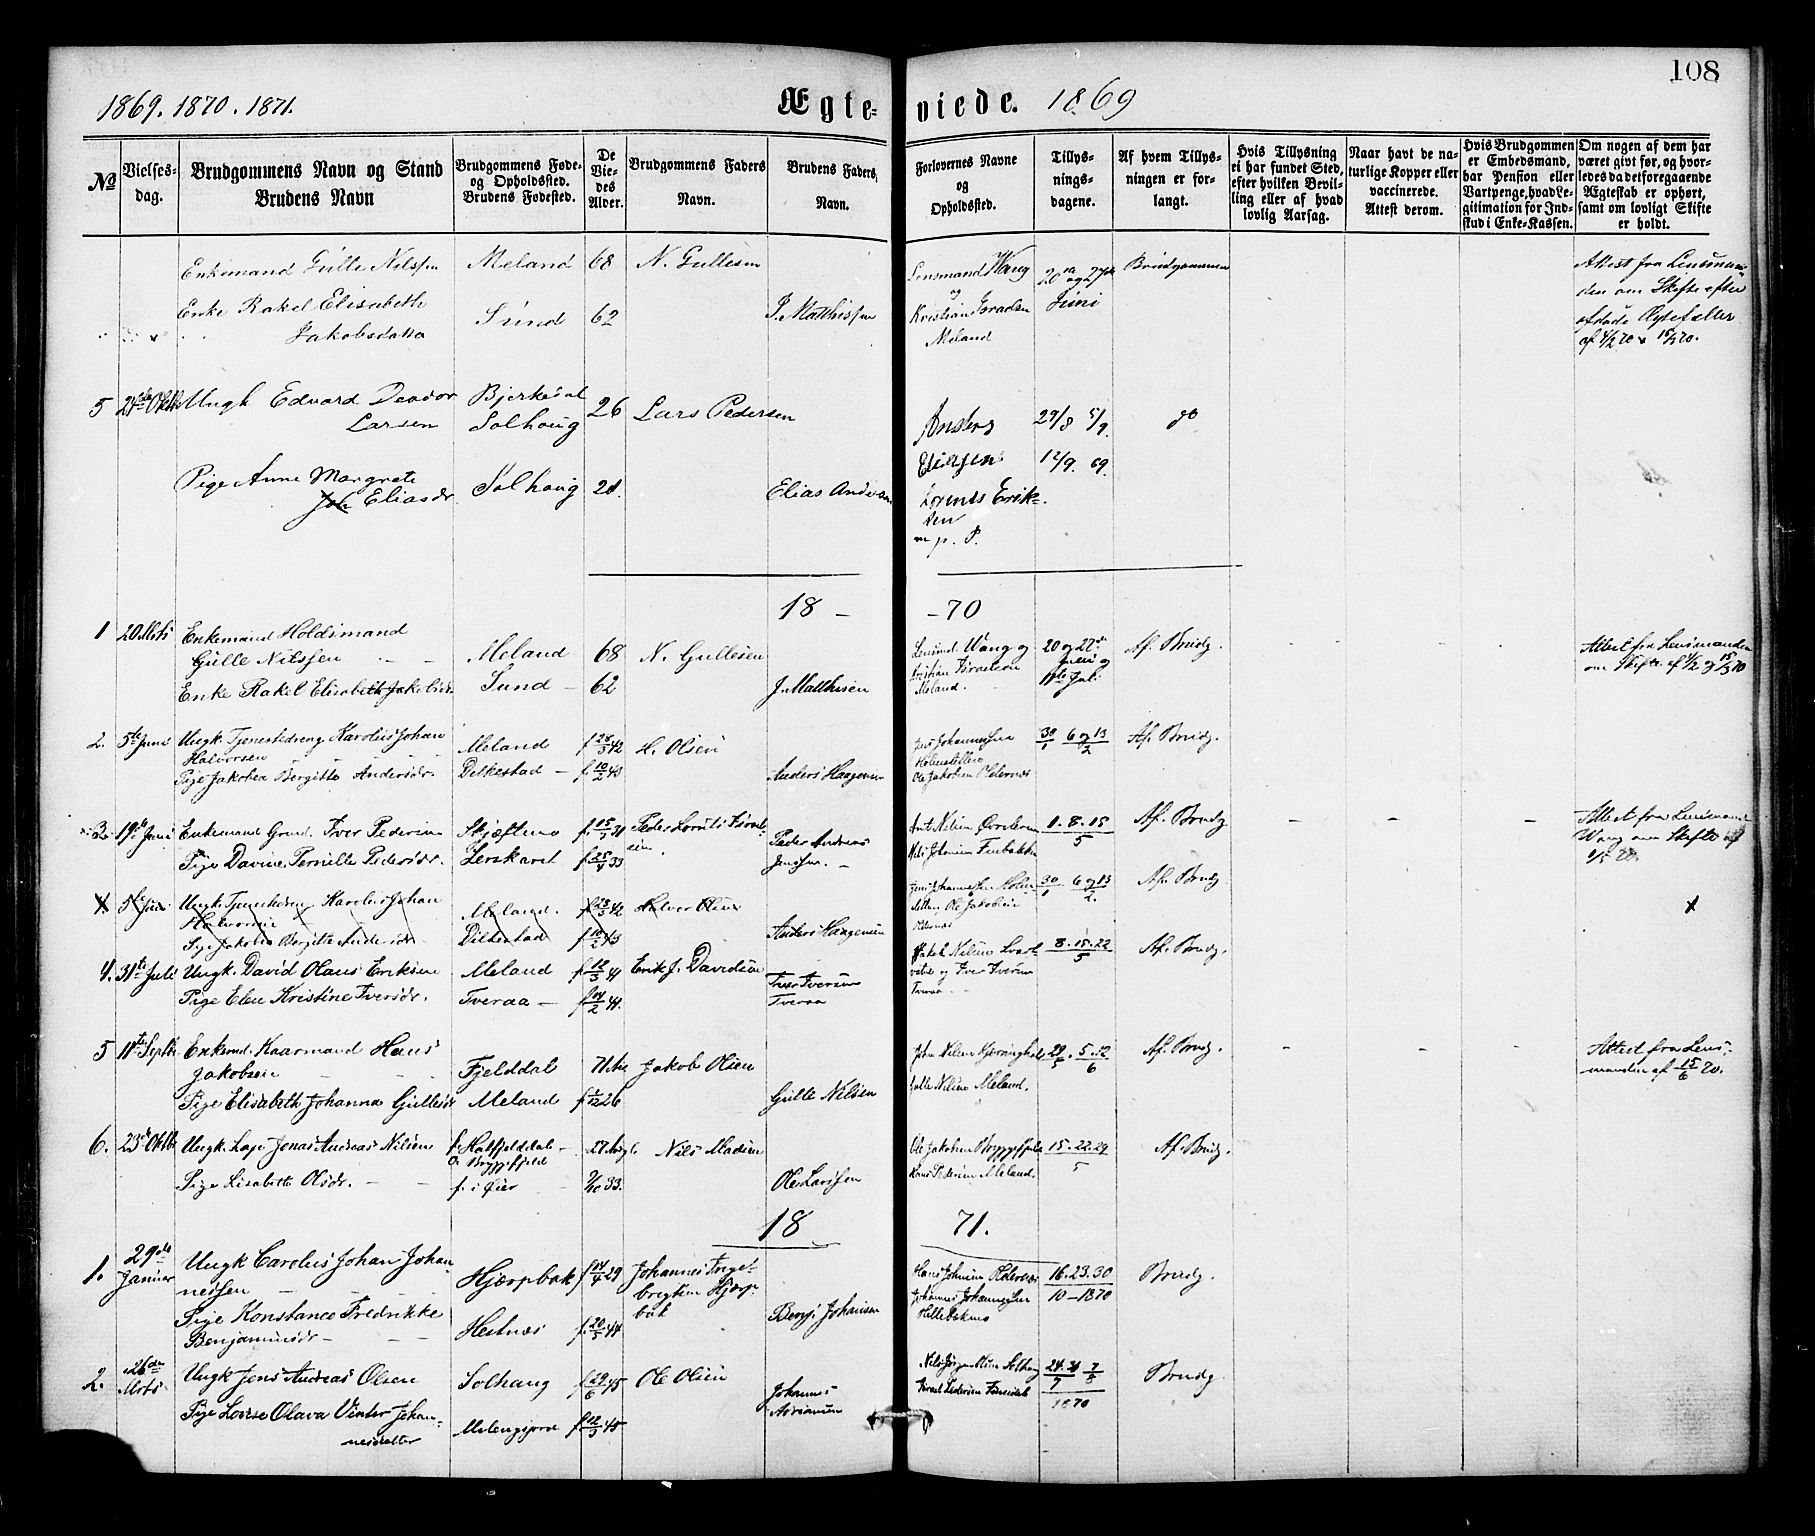 108
1869. 1870. 1871.
Ægteviede. 1869
No
Vielses-dag.
Brudgommens Navn og Stand
Brudens Navn
Brudgommens Føde-
og Opholdssted.
Brudens Fødested.
De Viedes Alder.
Brudgommens Faders Navn.
Brudens Faders Navn.
Forlovernes Navne
og
Opholdssted.
Tillysningsdagene.
Af hvem Tillysningen er forlangt.
Hvis Tillysning
ei har fundet Sted,
efter hvilken Bevil-
ling eller af hvad
lovlig Aarsag.
Naar havt de na-
turlige Kopper eller
vaccinerede.
Attest derom.
Hvis Brudgommen
er Embedsmand,
har Pension eller
Vartpenge, hvad Le-
gitimation for Ind-
skud i Enke-Kassen.
Om nogen af dem har
været givt før, og hvor-
ledes da det foregaaende
Ægteskab er ophørt,
samt om lovligt Skifte
er holdt.
Enkemand Gulle Nilssen Meland 68 N. Gullesen
Lensmand Wang 20 og 27 Brudgommen
og Juni
Enke Rakel Elisabeth Sund 62 J. Matthissen
Jakobsdatter
Kristian Israelsen
Meland
Attest fra Lensman-
den om Skifte efter
afdøde Ægtefæller
af 4/2 70 & 15/3 70.
5 24de Oktb Ungk Edvard Deodor Bjerkedal 26 Lars Pedersen
Larsen Solhoug
Anders 29/8 5/9. do
Pige Anne Margrete Solhoug 28. Elias Andersen
Eliasdr
12/9. 69.
Lorents Erik-
sen
m. p. P.
18 - - 70
1 20 Mrts Enkemand Holdsmand
Gulle Nilssen Meland 68 N. Gullesen
Enke Rakel Elisabeth Jakobsdr Sund 62 J. Matthisen
Lensmd Wang og 20 og 27de Af Brudg.
Kristian Israelsen Juni og
Meland. 11te Jul.
Attest fra Lensmanden
om Skifte af 4/2 og 15/3 70
2. 5te Juni Ungk. Tjenestedreng Karolus Johan
Halvorsen Meland f 28/3 42 H. Olsen
Pige Jakobea Bergitte Andersdr. Dilkestad f. 10/2 43 Anders Haagensen
Jens Johannessen 30/1 6 og 13/2 Af. Brudg.
Ole Jakobsen Oldernæs
3. 19de Juni Enkemand Grmd. Iver Pedersen f. 15/7 31 Peder Lornts Israel-
sen
Pige Davine Pernille Pedersdr. Lenkaret f. 25/4 33 Peder Andreas
Jenssen
1. 8. 15/5 Af. Brudg
Attest fra Lensmand
Wang om Skifte af
4. 5te Juni Ungk. Tjenestedreng Karolus Johan
Halvorsen Meland. f 28/3 42 Halvor Olsen
Pige Jakobea Bergitte Andersdr. Dilkestad f. 10/2 43 Anders Haagensen
Jens Johannessen 30/1 6 og 13/2. Af. Brudg
Ole Jakobsen
Oldernæs
4. 31te Juli Ungk. David Olaus Eriksen Meland f 12/3 41 Erik J. Davidsen
Pige Elen Kristine Iversdr. Tveraa f 14/2 41. Iver Iversen
Tveraa
Jakob Nilsen 8. 15. 22/5 Af. Brudg.
og Iver Iversen
Tveraa
5 11te Septbr Enkemd. Kaarmand Hans
Jakobsen Fjelddal 71 Jakob Olsen
Pige Elisabeth Johanna Gullesdr Meland f 1/12 26 Gulle Nilsen
John Nilsen 29/5. 5. 12/6 Af. Brudg.
Gulle Nilsen Meland.
Attest fra Lens-
manden af 15/6 70.
6. 23de Oktbr Ungk. Jonas Andreas Nilsen f. Halfjelddal Nils Madsen
O. Bryggefjeld
Pige Lisabeth Olsdr. f. i Øier 7/10 33. Ole Larssen
Ole Jakobsen Bryggefjeld 15. 22. 29/5 Af. Brudg.
Hans Pedersen Meland.
18 71.
1. 29de Januar Ungk Carolus Johan Johan-
nessen Hjærpbak f 14/4 29 Johannes Inge-
brigtsen Hjærp-
bak
Pige Konstance Fredrikke
Benjaminsdr Hestnæs f. 20/3 44 Benj. Johansen
Hans Johnsen Oldernæs 16. 23. 30 Brudg.
Johannes Johannessen 10-1870
2. 26de Mrts Ungk Jens Andreas Olsen Solhaug f 29/6 45 Ole Olsen
Pige Lovise Olava Vinter Johan-
nesdatter f. 12/3 45 Johannes
Adriansen
Nils Jørgen Olsen Solhaug 24. 31/7 7/8 Brudg.
1870